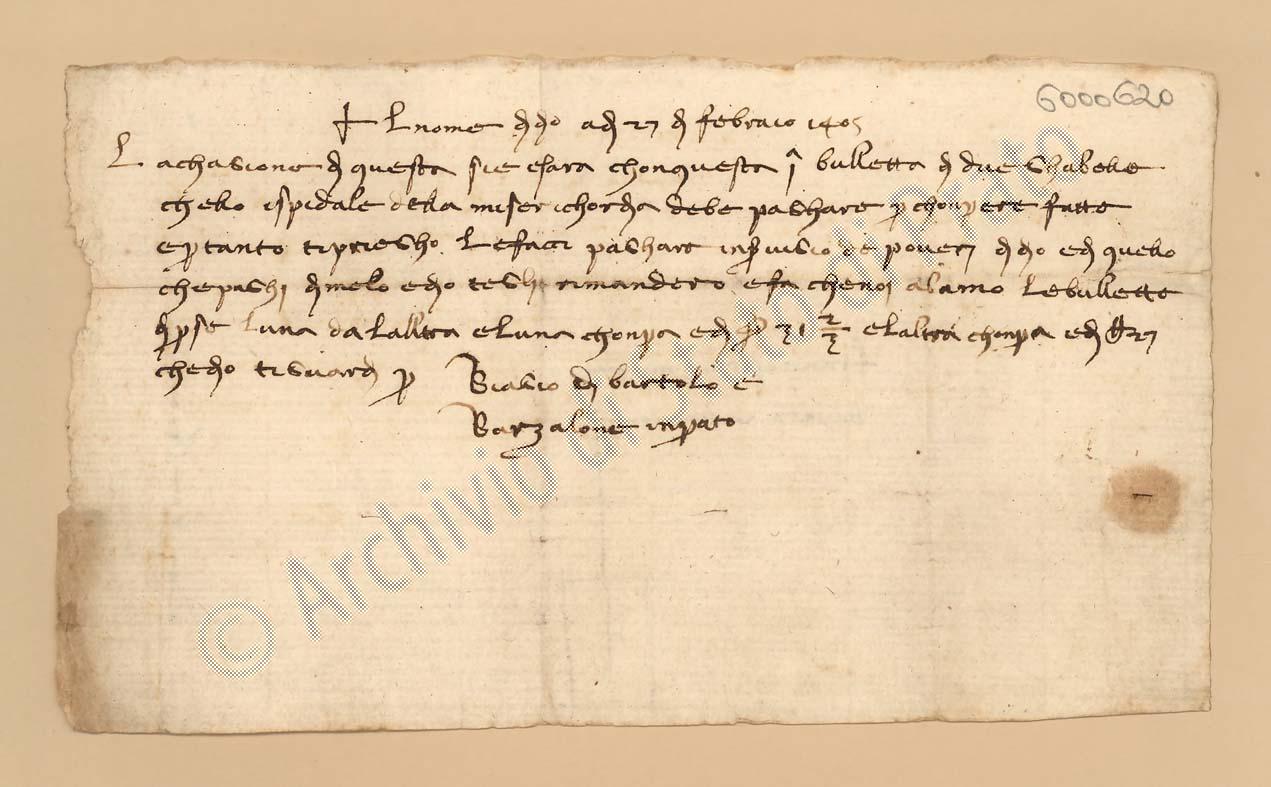 6000620
✝ Lnome d dio ad 27 d febraio 1405
La chagione d questa sie esara chonquesta j bulletta d due ghabelle
chello ispidale della miserichorda debe paghare p chonpere fatte
e p tanto tipriegho lefacci paghare in servigio de poveri d dio ed quello
chepaghi dmelo edio teglj rimandero e fa chenoj abiamo lebullette
di p se luna da laltra eluna chonpa ed elaltra chonpa ed
chedio tiguardi p Biagio di bartolo e
Barzalone inprato
© Archivio di Stato di Prato